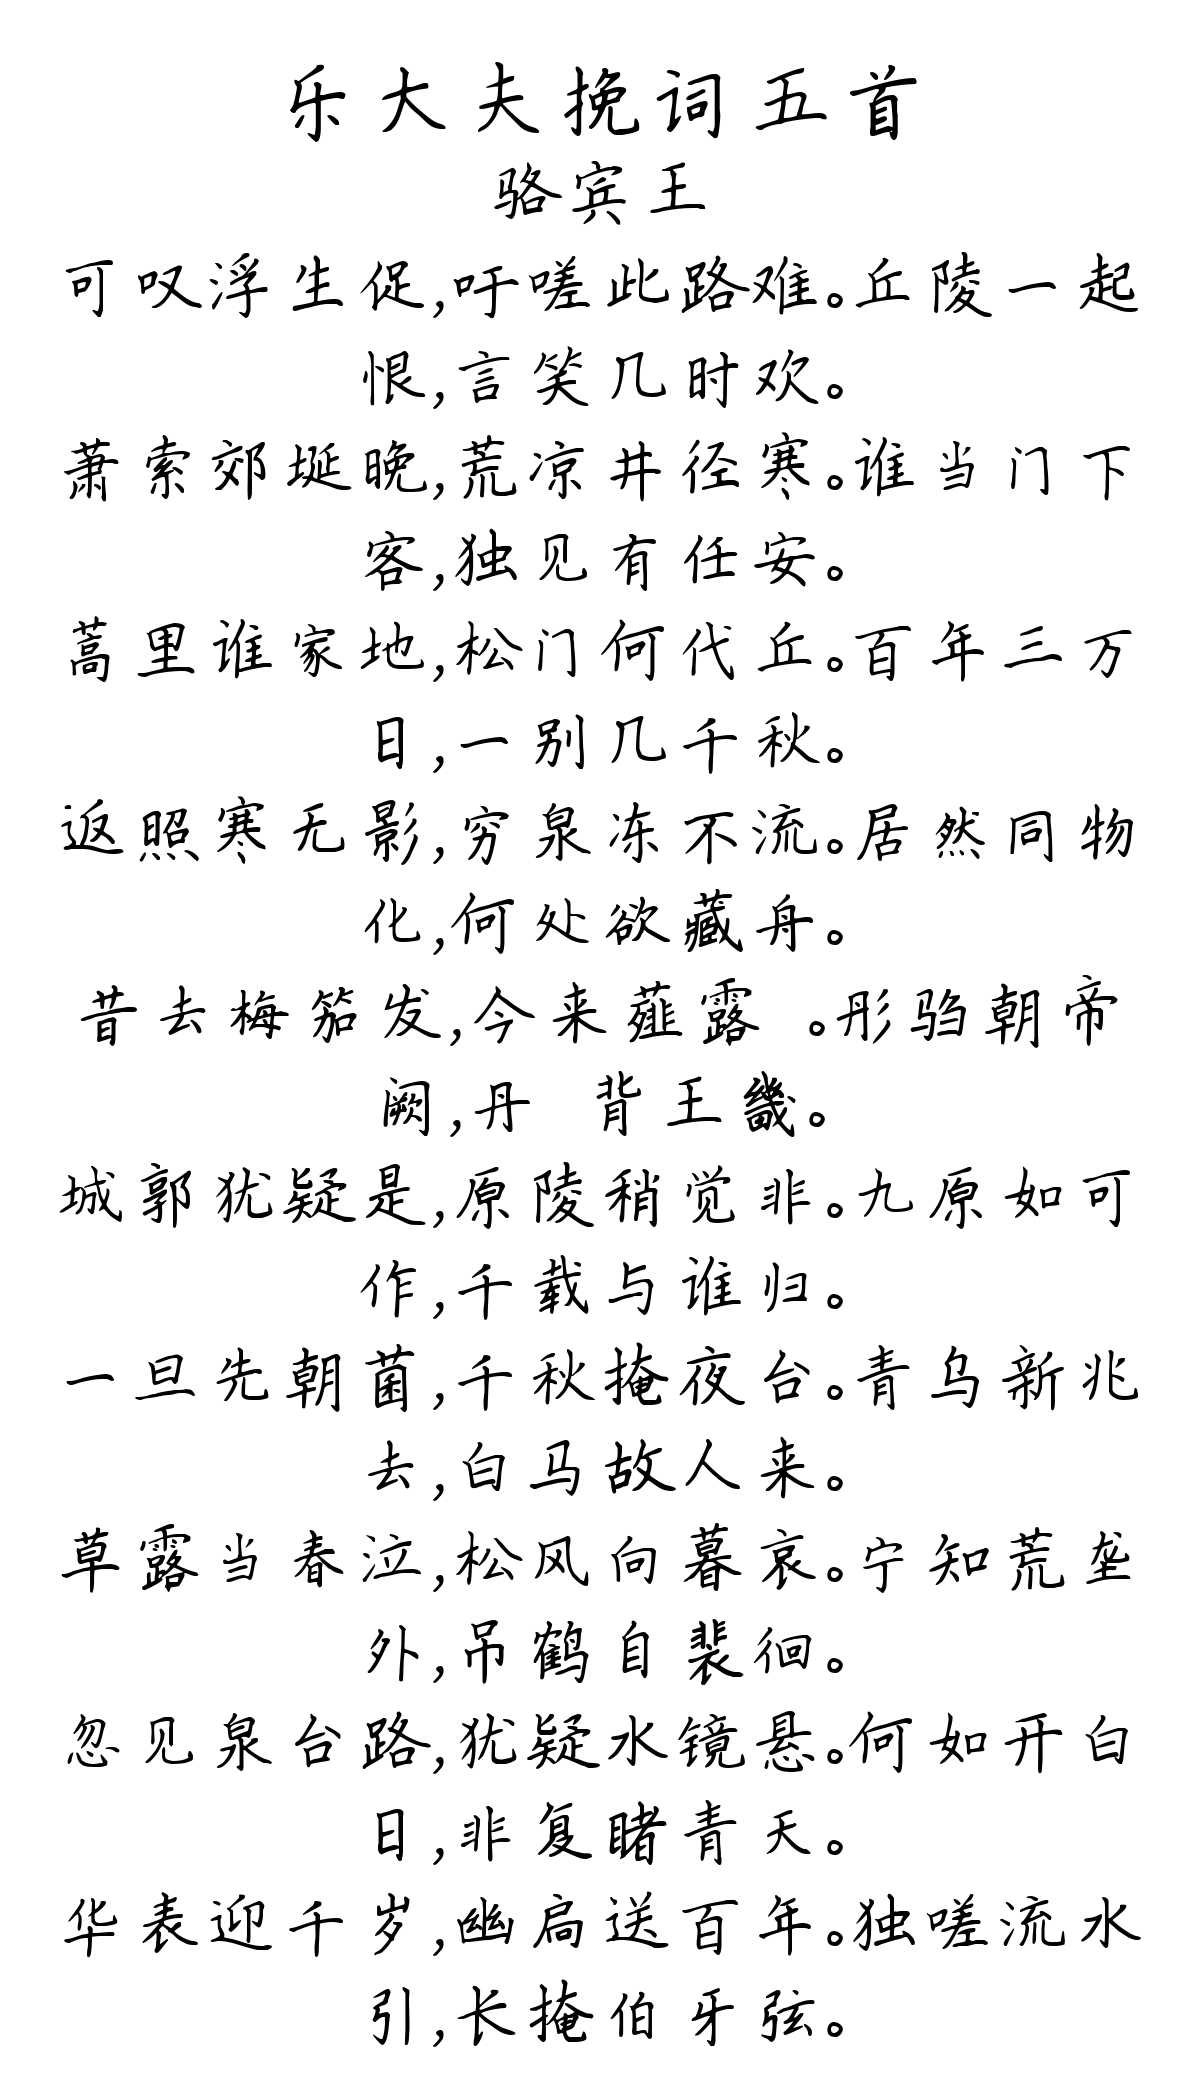 乐大夫挽词五首
骆宾王
可叹浮生促,吁嗟此路难。丘陵一起
恨,言笑几时欢。
萧索郊埏晚,荒凉井径寒。谁当门下
客,独见有任安。
蒿里谁家地,松门何代丘。百年三万
日,一别几千秋。
返照寒无影,穷泉冻不流。居然同物
化,何处欲藏舟。
昔去梅笳发,今来薤露 。彤驺朝帝
阙,丹 背王畿。
城郭犹疑是,原陵稍觉非。九原如可
作,千载与谁归。
一旦先朝菌,千秋掩夜台。青乌新兆
去,白马故人来。
草露当春泣,松风向暮哀。宁知荒垄
外,吊鹤自裴徊。
忽见泉台路,犹疑水镜悬。何如开白
日,非复睹青天。
华表迎千岁,幽扃送百年。独嗟流水
引,长掩伯牙弦。